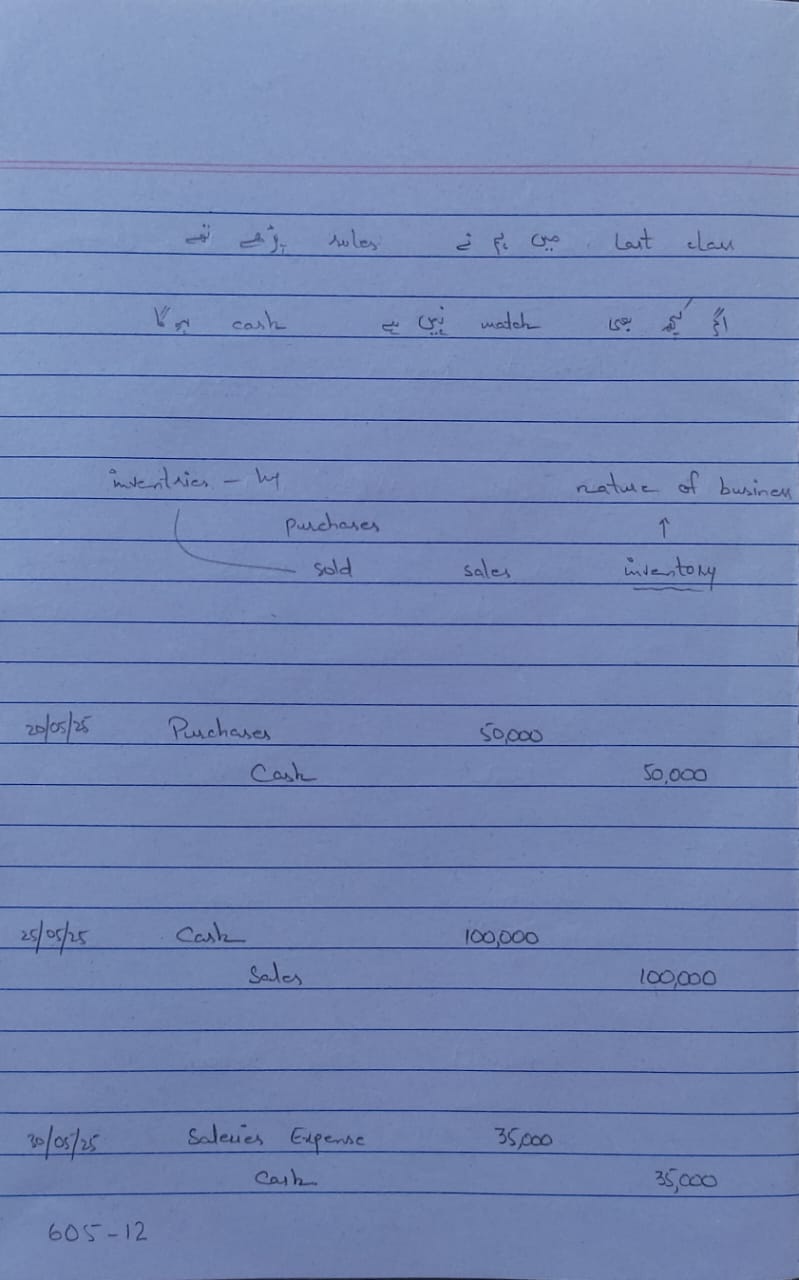 Last class میں ہم نے rules پڑھے تھے
اگر کچھ بھی match نہیں ہے cash ہو گا
inventries - by nature of business
purchases ↑
sold sales inventory
20/05/25 Purchases 50,000
Cash 50,000
25/05/25 Cash 100,000
Sales 100,000
30/05/25 Saleries Expense 35,000
Cash 35,000
605-12